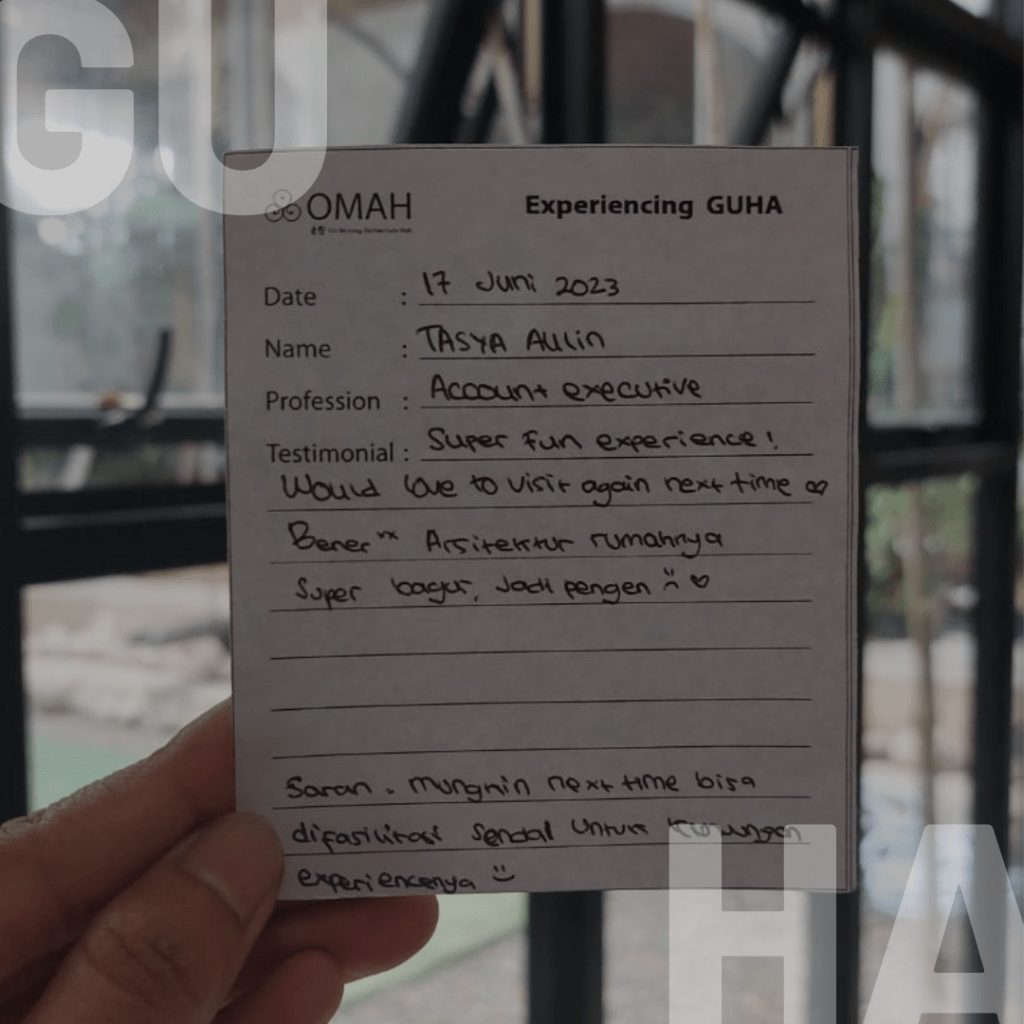 GU
OMAH
Experiencing GUHA
Date : 17 Juni 2023
Name : TASYA AULIN
Profession : Account executive
Testimonial : Super fun experience!
Would love to visit again next time ♡
Bener" Arsitektur rumahnya
Super bagus, Jadi pengen ♡
Saran. mungkin next time bisa
difasilitasi Sendal Untuk Kunjungan
experiencenya
HA